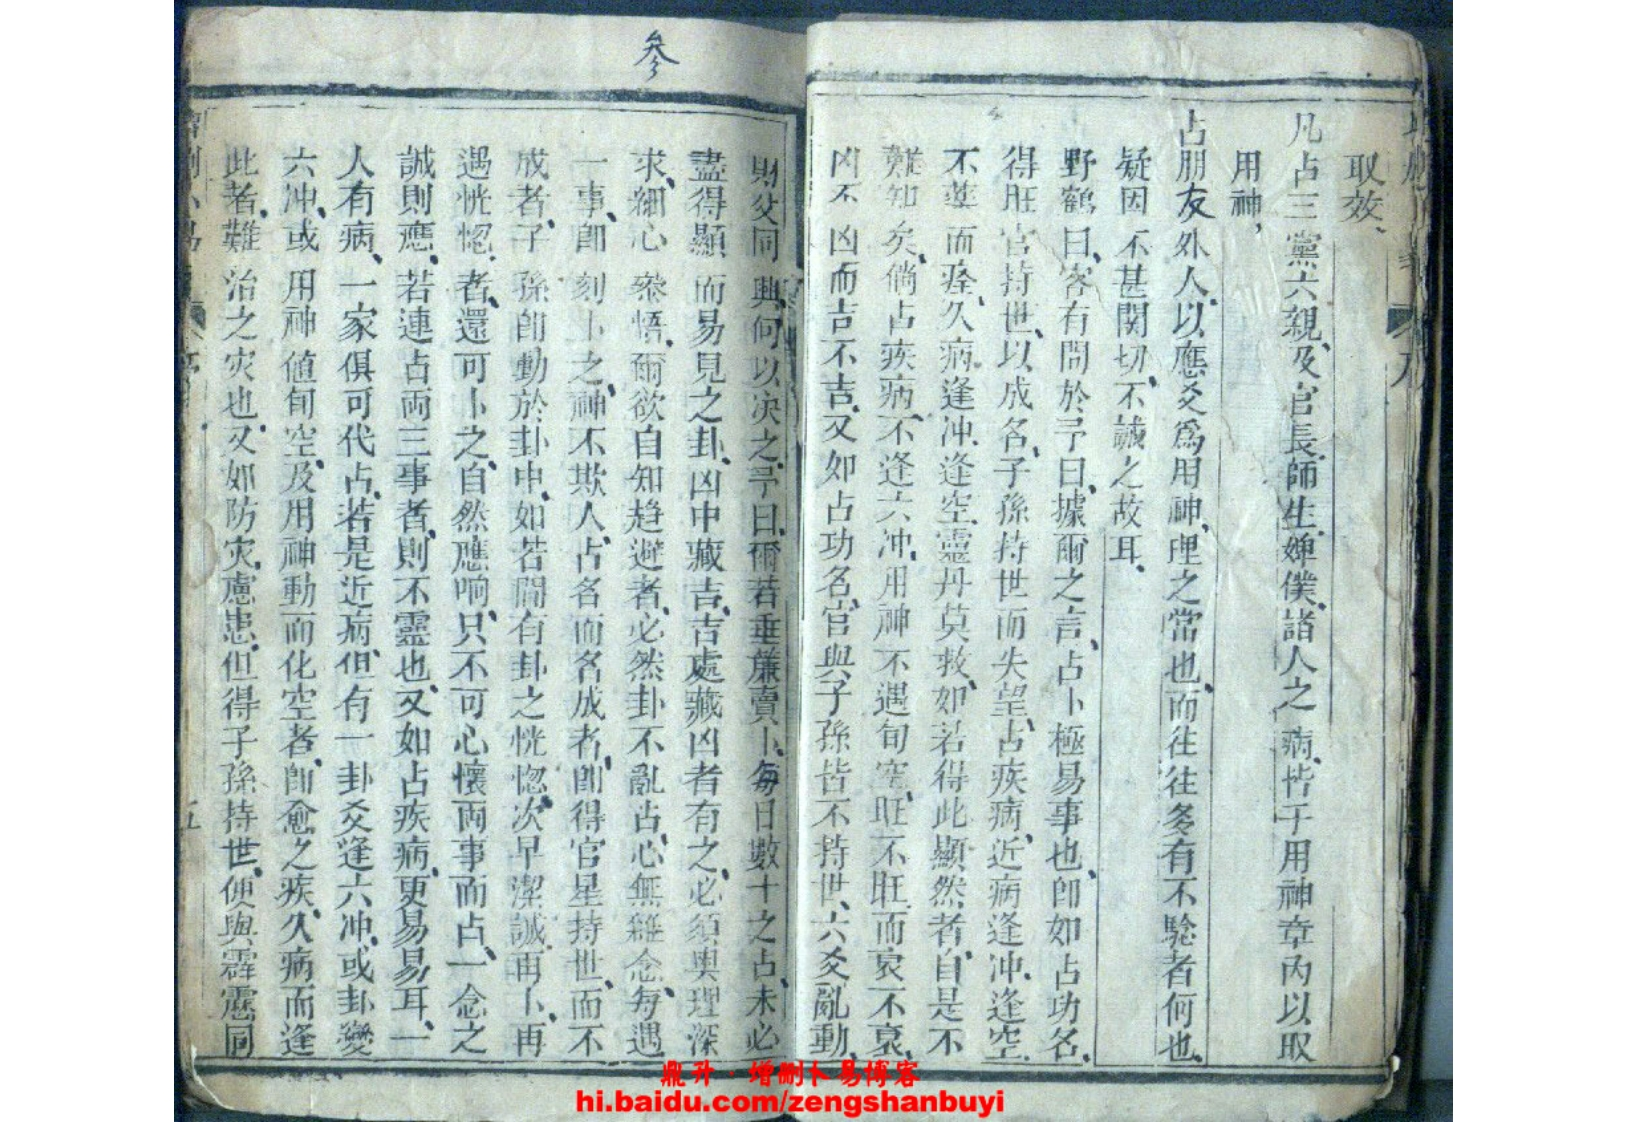 取效、
凡占三黨六親、及官長、師生、婢僕、諸人之病、皆于用神章內以取
用神、
占朋友外人、以應爻為用神、理之當也、而往往多有不驗者何也、
疑因不甚関切、不誠之故耳、
野鶴曰、客有問於予曰、據爾之言、占卜極易事也、即如占功名、
得旺官持世、以成名、子孫持世而失望、占疾病、近病逢冲、逢空、
不藥而痊、久病逢冲、逢空、靈丹莫救、如若得此顯然者、自是不
難知矣、倘占疾病、不逢六冲、用神不遇旬空、旺不旺而衰不衰、
凶不凶而吉不吉、又如占功名、官與子孫皆不持世、六爻亂動、
財父同興、何以决之、予曰、爾若垂簾賣卜、每日數十之占、未必
盡得顯而易見之卦、凶中藏吉、吉處藏凶者有之、必須與理深
求、細心叅悟、爾欲自知趨避者、必然卦不亂占、心無雜念、每遇
一事、卽刻卜之、神不欺人、占名而名成者、卽得官星持世、而不
成者、子孫卽動於卦中、如若間有卦之恍惚、次早潔誠再卜、再
遇恍惚者、還可卜之、自然應响、只不可心懷両事而占、一念之
誠則應、若連占両三事者、則不靈也、又如占疾病、更易易耳、一
人有病、一家俱可代占、若是近病、但有一卦爻逢六冲、或卦變
六冲、或用神値旬空、及用神動而化空者、卽愈之疾、久病而逢
此者、難治之灾也、又如防灾慮患、但得子孫持世、便與霹靂同
增刪卜易
五
參
鼎升·增刪卜易博客
hi.baidu.com/zengshanbuyi